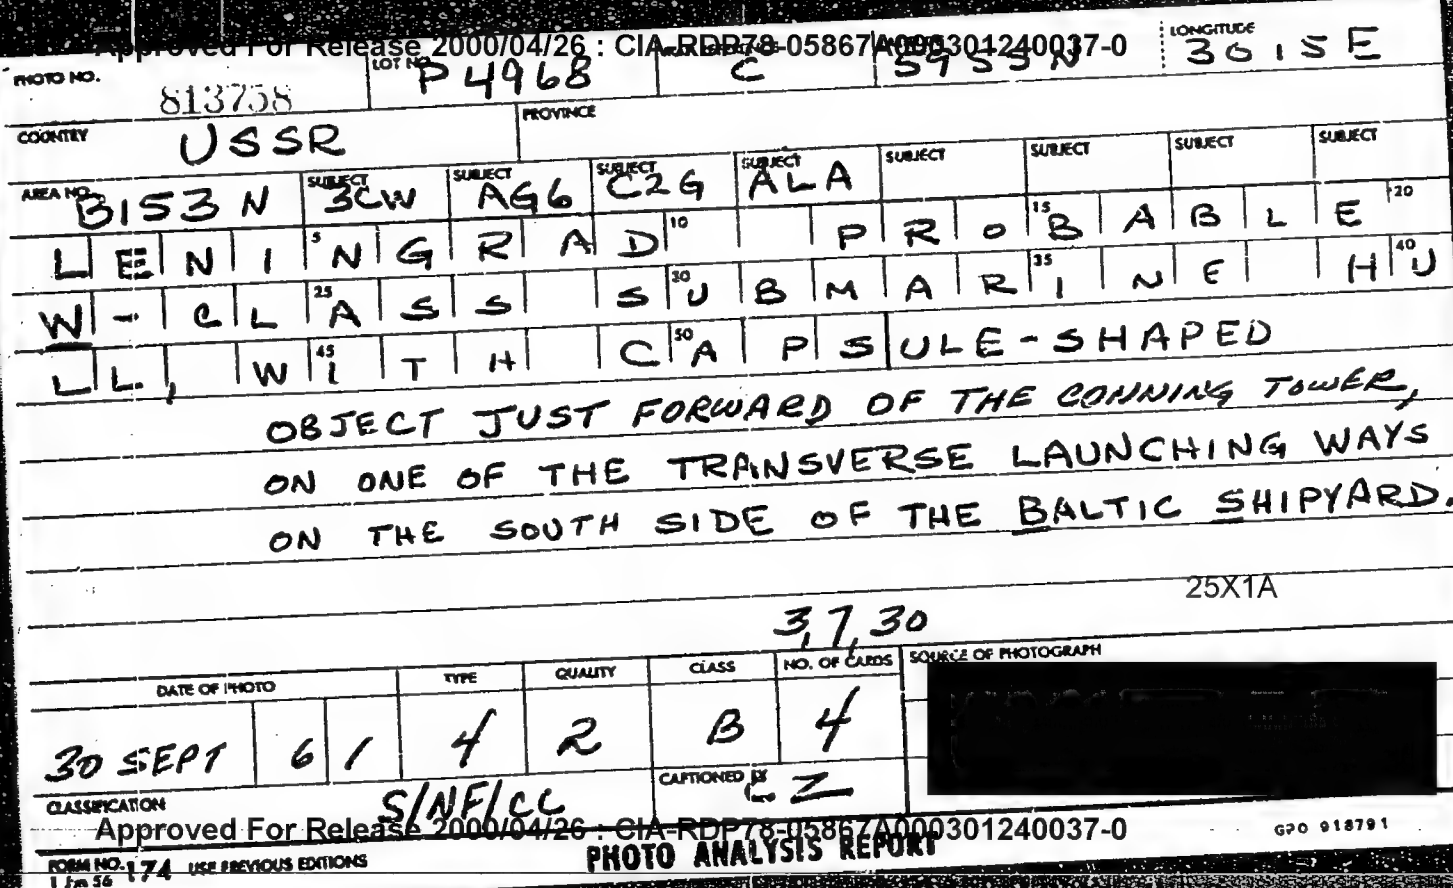 Approved For Release 2000/04/26 : CIA-RDP78-05867A000301240037-0
PHOTO NO. 813758 LOT NO. P4968 C 5955N LONGITUDE 3015E
COUNTRY USSR PROVINCE
AREA NO. B153N SUBJECT 3CW SUBJECT AG6 SUBJECT C2G SUBJECT ALA SUBJECT SUBJECT SUBJECT SUBJECT
LENI 5 NGRAD 10 PRO 15 BABLE 20
W-CL 25 ASS S 30 UBMAR 35 INE H 40 U
LL, W 45 ITH C 50 APSULE-SHAPED
OBJECT JUST FORWARD OF THE CONNING TOWER,
ON ONE OF THE TRANSVERSE LAUNCHING WAYS
ON THE SOUTH SIDE OF THE BALTIC SHIPYARD.
25X1A
3,7,30
DATE OF PHOTO TYPE QUALITY CLASS NO. OF CARDS SOURCE OF PHOTOGRAPH
30 SEPT 61 4 2 B 4
CLASSIFICATION S/NF/CC CAPTIONED BY CZ
Approved For Release 2000/04/26 : CIA-RDP78-05867A000301240037-0
GPO 918791
FORM NO. 174 USE PREVIOUS EDITIONS PHOTO ANALYSIS REPORT
56